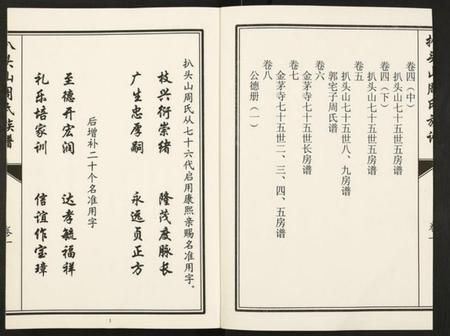 扒头山周氏族谱
卷一
卷四（中）
扒头山七十五世五房谱
卷四（下）
扒头山七十五世五房谱
卷五
扒头山七十五世八、九房谱
郭宅子周氏谱
卷六
金茅寺七十五世长房谱
卷七
金茅寺七十五世二、三、四、五房谱
卷八
公德册（一）
扒头山周氏从七十六代启用康熙亲赐名准用字。
枝兴衍崇绪 隆茂度脉长
广生忠厚嗣 永远贞正方
后增补二十个名准用字
至德开宏润 达孝毓福祥
礼乐培家训 信谊作宝璋
扒头山周氏族谱
卷一
1